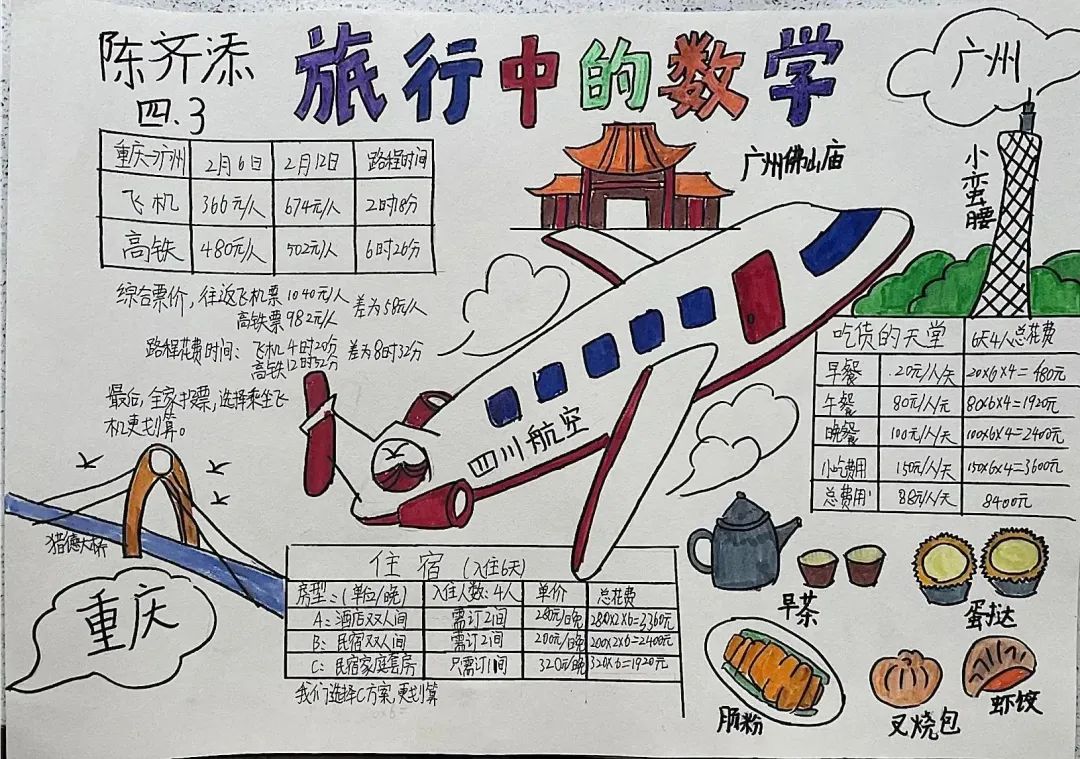 陈齐添
四.3
旅行中的数学
重庆→广州 2月6日 2月12日 路程时间
飞机 366元/人 674元/人 2时18分
高铁 480元/人 502元/人 6时26分
综合票价,往返飞机票1040元/人 差为58元/人
高铁票982元/人
路程花费时间:飞机4时20分 差为8时32分
高铁12时52分
最后,全家投票,选择乘坐飞
机更划算。
广州佛山庙
广州
小蛮腰
四川航空
猎德大桥
重庆
吃货的天堂 6天4人总花费
早餐 20元/人/天 20×6×4=480元
午餐 80元/人/元 80×6×4=1920元
晚餐 100元/人/天 100×6×4=2400元
小吃费用 150元/人/天 150×6×4=3600元
总费用 88元/人/天 8400元
住宿(入住6天)
房型:(单位/晚) 入住人数:4人 单价 总花费
A:酒店双人间 需订2间 280元/晚 280×2×6=3360元
B:民宿双人间 需订2间 200元/晚 200×2×6=2400元
C:民宿家庭套房 只需订1间 320元/晚 320×6=1920元
我们选择C方案,更划算
早茶
蛋挞
肠粉
叉烧包
虾饺